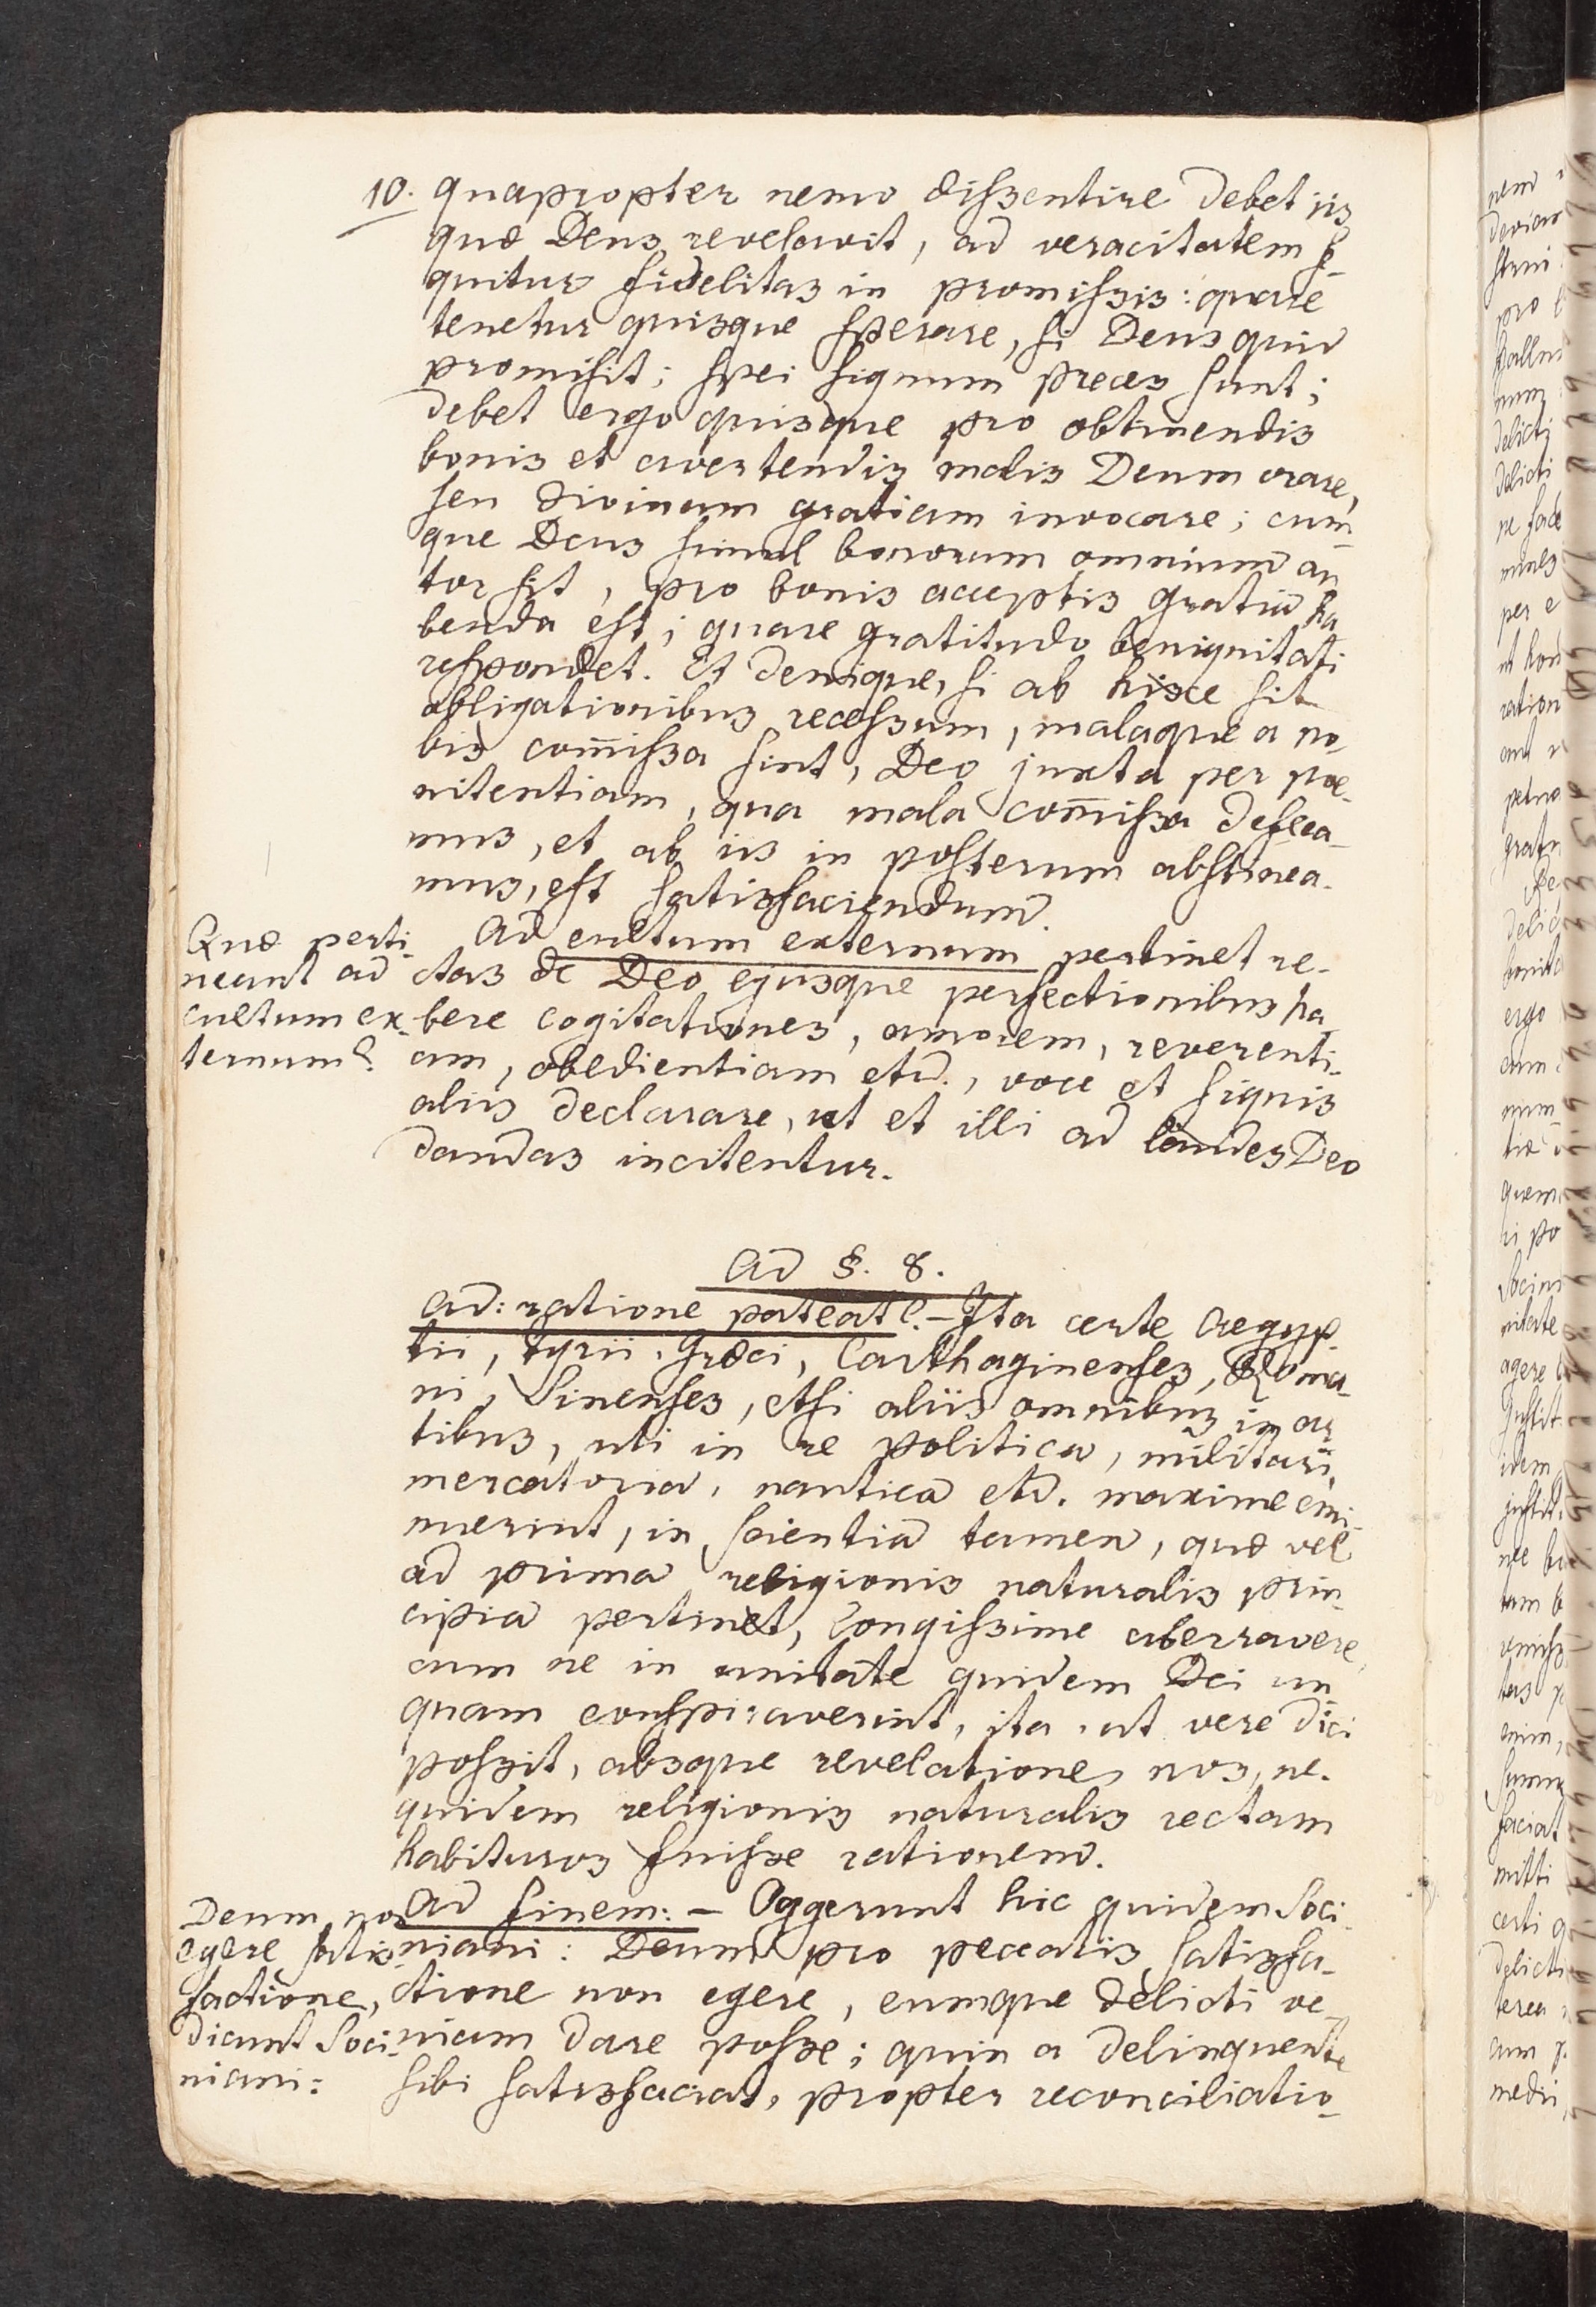 10. quapropter nemo dissentire debet iis
quæ Deus revelavit, ad veracitatem se-
quitur fidelitas in promissis: quare
tenetur quisque sperare, si Deus quid
promisit; spei signum preces sunt;
debet ergo quisque pro obtinendis
bonis et avertendis malis Deum orare,
seu divinam gratiam invocare; cum-
que Deus simul bonorum omnium au
tor sit, pro bonis acceptis gratia ha
benda est; quare gratitudo benignitati
respondet. Et denique, si ab hisce sit
obligationibus recessum, malaque a no
bis com̅issa sint, Deo juxta per poe-
nitentiam, qua mala com̅issa deflea-
mus, et ab iis in posterum abstinea-
mus, est satisfaciendum.
Quæ perti-
neant ad
cultum ex-
ternum?
Ad cultum externum pertinet re-
ctas de Deo ejusque perfectionibus ha
bere cogitationes, amorem, reverenti-
am, obedientiam etc., voce et signis
aliis declarare, ut et illi ad laudes Deo
dandas incitentur.
Ad §. 8.
ad: ratione pateat?. – Ita certe Aegyp-
tii, Tyrii, Græci, Carthaginenses, Roma-
ni, Sinenses, etsi aliis omnibus in ar
tibus, uti in re politica, militari,
mercatoria, nautica etc. maxime emi-
nuerint, in scientia tamen, quæ vel
ad prima religionis naturalis prin-
cipia pertinet, longissime aberravere,
cum ne in unitate quidem Dei un
quam conspiraverint, ita, ut vere dici
possit, absque revelatione, nos, ne-
quidem religionis naturalis rectam
habituros fuisse rationem.
Deum non
egere satis-
factione,
dicunt Soci-
niani:
ad finem: – Oggerunt hic quidem Soci-
niani: Deum pro peccatis satisfa-
ctione non egere, eumque delicti ve-
niam dare posse; quin a delinquente
sibi satisfaciat, propter reconciliatio-